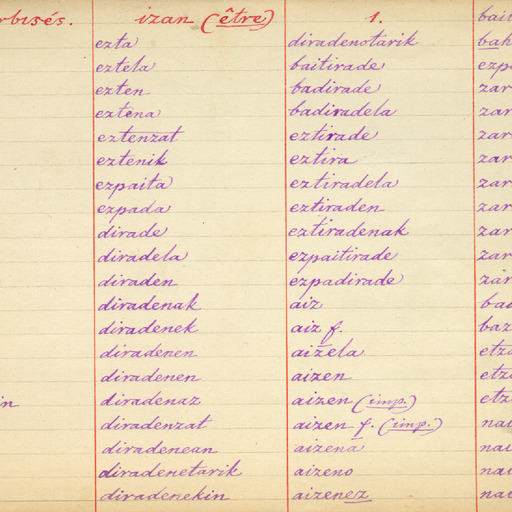 izan (être) 1.
ezta
eztela
ezten
eztena
eztenzat
eztenik
ezpaita
ezpada
dirade
diradela
diraden
diradenak
diradenek
diradenen
diradenen
diradenaz
diradenzat
diradenean
diradenetarik
diradenekin
diradenotarik
baitirade
badirade
badiradela
eztirade
eztira
eztiradela
eztiraden
eztiradenak
ezpaitirade
ezpadirade
aiz
aiz f.
aizela
aizen
aizen (imp.)
aizen f. (imp.)
aizena
aizeno
aizenez